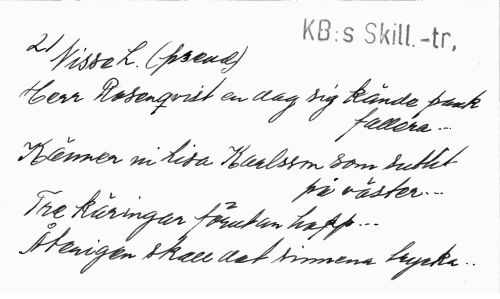 KB:s Skill.-tr,
21
Nisse L. (pseud)
Herr Rosenqvist en dag sig kände pank
fallera...
Känner ni Lisa Karlsson som suttit
på väster...
Tre käringar förutan hopp...
Återigen skall det sinnena trycka..